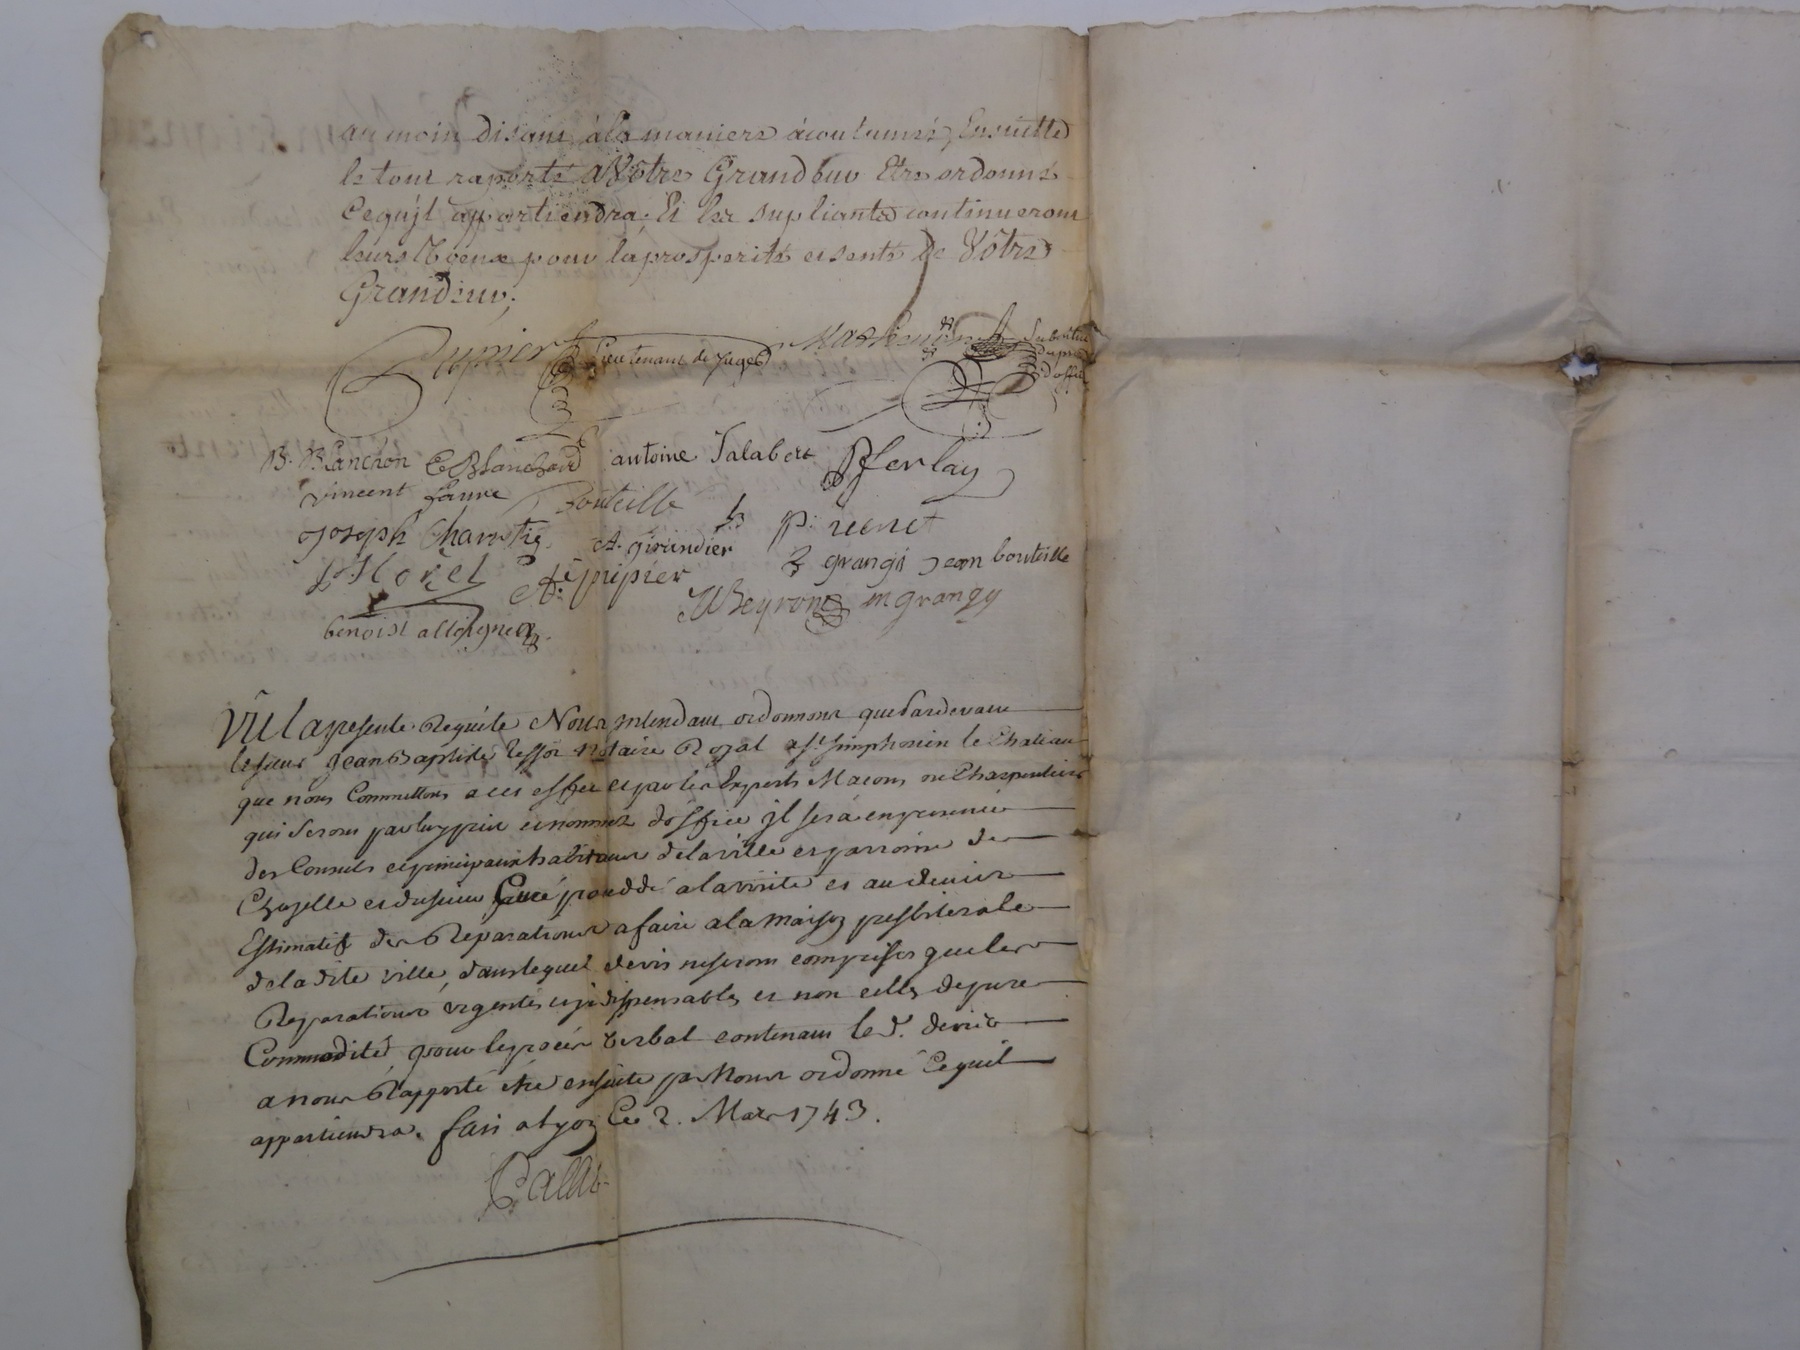 au moin disant à la maniere àcoutumée, Ensuitte
le tout raporté a Vôtre Grandeur Etre ordonné
Ce qu'jl appartiendra; Et les supliants continueront
leurs Voeux pour la prosperité et santé de Vôtre
Grandeur;
Dupier Lieutenant de Juge
substitut
d'office
B. Blanchon C Blanchard antoine Jalabert Pferlay
vincent faure Bouteille
Joseph Charretie A. girindier p: renet
J Morel A: pipier grangé Jean bouteille
J Beyron m grangy
benoist
Vû la presente Requête Nous jntendant ordonnons que Pardevant
le sieur Jean Baptiste Tessor notaire Royal a st simphorien le Chateau
que nous Commettons a cet effet et par les Experts Macons ou Charpentiers
qui seront par luy pris et nommés d'office jl sera en presence
des Consuls et principaux habitans de la ville et parroisse de
Chazelle et du sieur Curé procedé a la visite et au devis
Estimatif des Reparations a faire a la maison presbiterale
de la dite ville, dans lequel devis ne seront comprises que les
Reparations urgentes et jndispensables et non celles de pure
Commodité, pour le procés verbal contenant le d. devis
a nous Rapporté être ensuite par Nous ordonné Ce quil
appartiendra. fait a Lyon Ce 2. Mars 1743.
Pallu